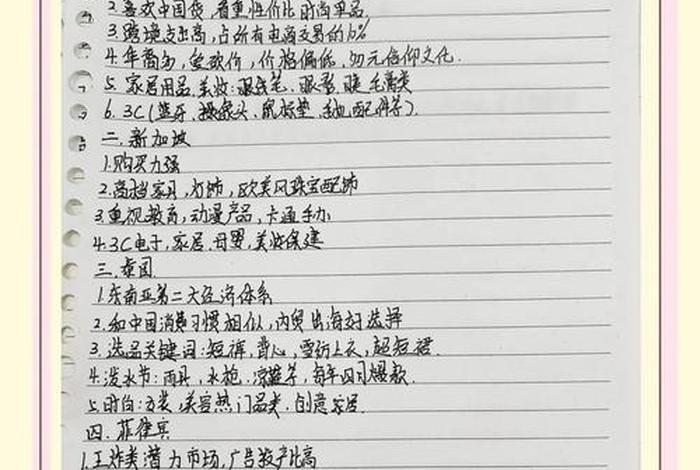 2.喜欢中国货,看重性价比时尚单品
3.跨境支出高,占所有电商交易的10%
4.年青为,爱砍价,价格偏低,多元信仰文化.
5.家居用品.美妆:眼线笔.眼影.睫毛膏类
6.3C(蓝牙、摄像头、鼠标垫、手机配件等).
二.新加坡
1.购买力强
2.高档家具,灯饰,欧美风珠宝配饰
3.重视教育,动漫产品、卡通手办
4.3C电子,家居.母婴,美妆保健
三.泰国
1.东南亚第二大经济体系
2.和中国消费习惯相似,内贸出海好选择
3.选品关键词:短裤,背心,雪纺上衣,超短裙.
4.泼水节:雨具,水枪,凉鞋等,每年四月爆款.
5.时尚:女装,美容热门品类.创意家居.
四.菲律宾
1.王炸类潜力市场,广告投产比高